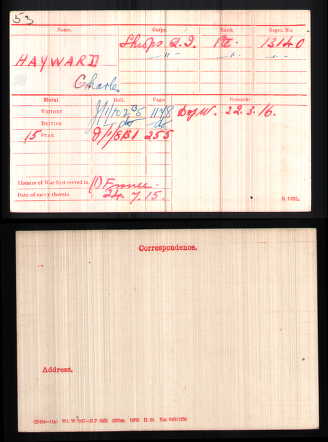 53
Name. Corps. Rank. Regtl. No.
HAYWARD Shrops L.I. Pte. 13140
Charles
Medal. Roll. Page. Remarks.
Victory 1178 D of W. 22.3.16.
British do do
15 Star 255
Theatre of War first served in (1) France.
Date of entry therein 24.7.15.
Correspondence.
Address.